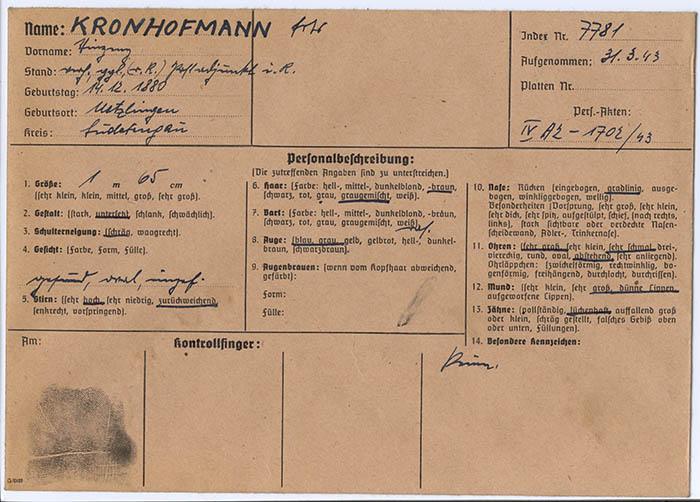 Name: KRONHOFMANN
Vorname: Vinzenz
Stand: verh. ggl. (r. K.) Postadjunkt i. R.
Geburtstag: 14. 12. 1880
Geburtsort:
Kreis: Sudetengau
Index Nr. 7781
Aufgenommen: 31. 3. 43
Platten Nr.
Pers.-Akten:
IV A2 - 1702/43
Personalbeschreibung:
(Die zutreffenden Angaben sind zu unterstreichen.)
1. Größe: 1 m 65 cm
(sehr klein, klein, mittel, groß, sehr groß).
2. Gestalt: (stark, untersetzt, schlank, schwächlich).
3. Schulterneigung: (schräg, waagrecht).
4. Gesicht: (Farbe, Form, Fülle).
gesund, oval,
5. Stirn: (sehr hoch, sehr niedrig, zurückweichend,
senkrecht, vorspringend).
6. Haar: (Farbe: hell-, mittel-, dunkelblond, -braun,
schwarz, rot, grau, graugemischt, weiß).
7. Bart: (Farbe: hell-, mittel-, dunkelblond, -bräun,
schwarz, rot, grau, graugemischt, weiß).
8. Auge: (blau, grau, gelb, gelbrot, hell-, dunkel-
braun, schwarzbraun).
9. Augenbrauen: (wenn vom Kopfhaar abweichend,
gefärbt):
Form:
Fülle:
10. Nase: Rücken (eingebogen, gradlinig, ausge-
bogen, winkliggebogen, wellig).
Besonderheiten (Vorsprung, sehr groß, sehr klein,
sehr dick, sehr spitz, aufgestülpt, schief, (nach rechts,
links), stark sichtbare oder verdeckte Nasen-
scheidewand, Adler-, Trinkernase).
11. Ohren: (sehr groß, sehr klein, sehr schmal, drei-,
viereckig, rund, oval, abstehend, sehr anliegend).
Ohrläppchen: (zwickelförmig, rechtwinklig, bo-
genförmig, freihängend, durchlocht, durchrissen).
12. Mund: (sehr klein, sehr groß, dünne Lippen,
aufgeworfene Lippen).
13. Zähne: (vollständig, lückenhaft, auffallend groß
oder klein, schräg gestellt, falsches Gebiß oben
oder unten, Füllungen).
14. Besondere Kennzeichen:
Keine.
Am:
Kontrollfinger: